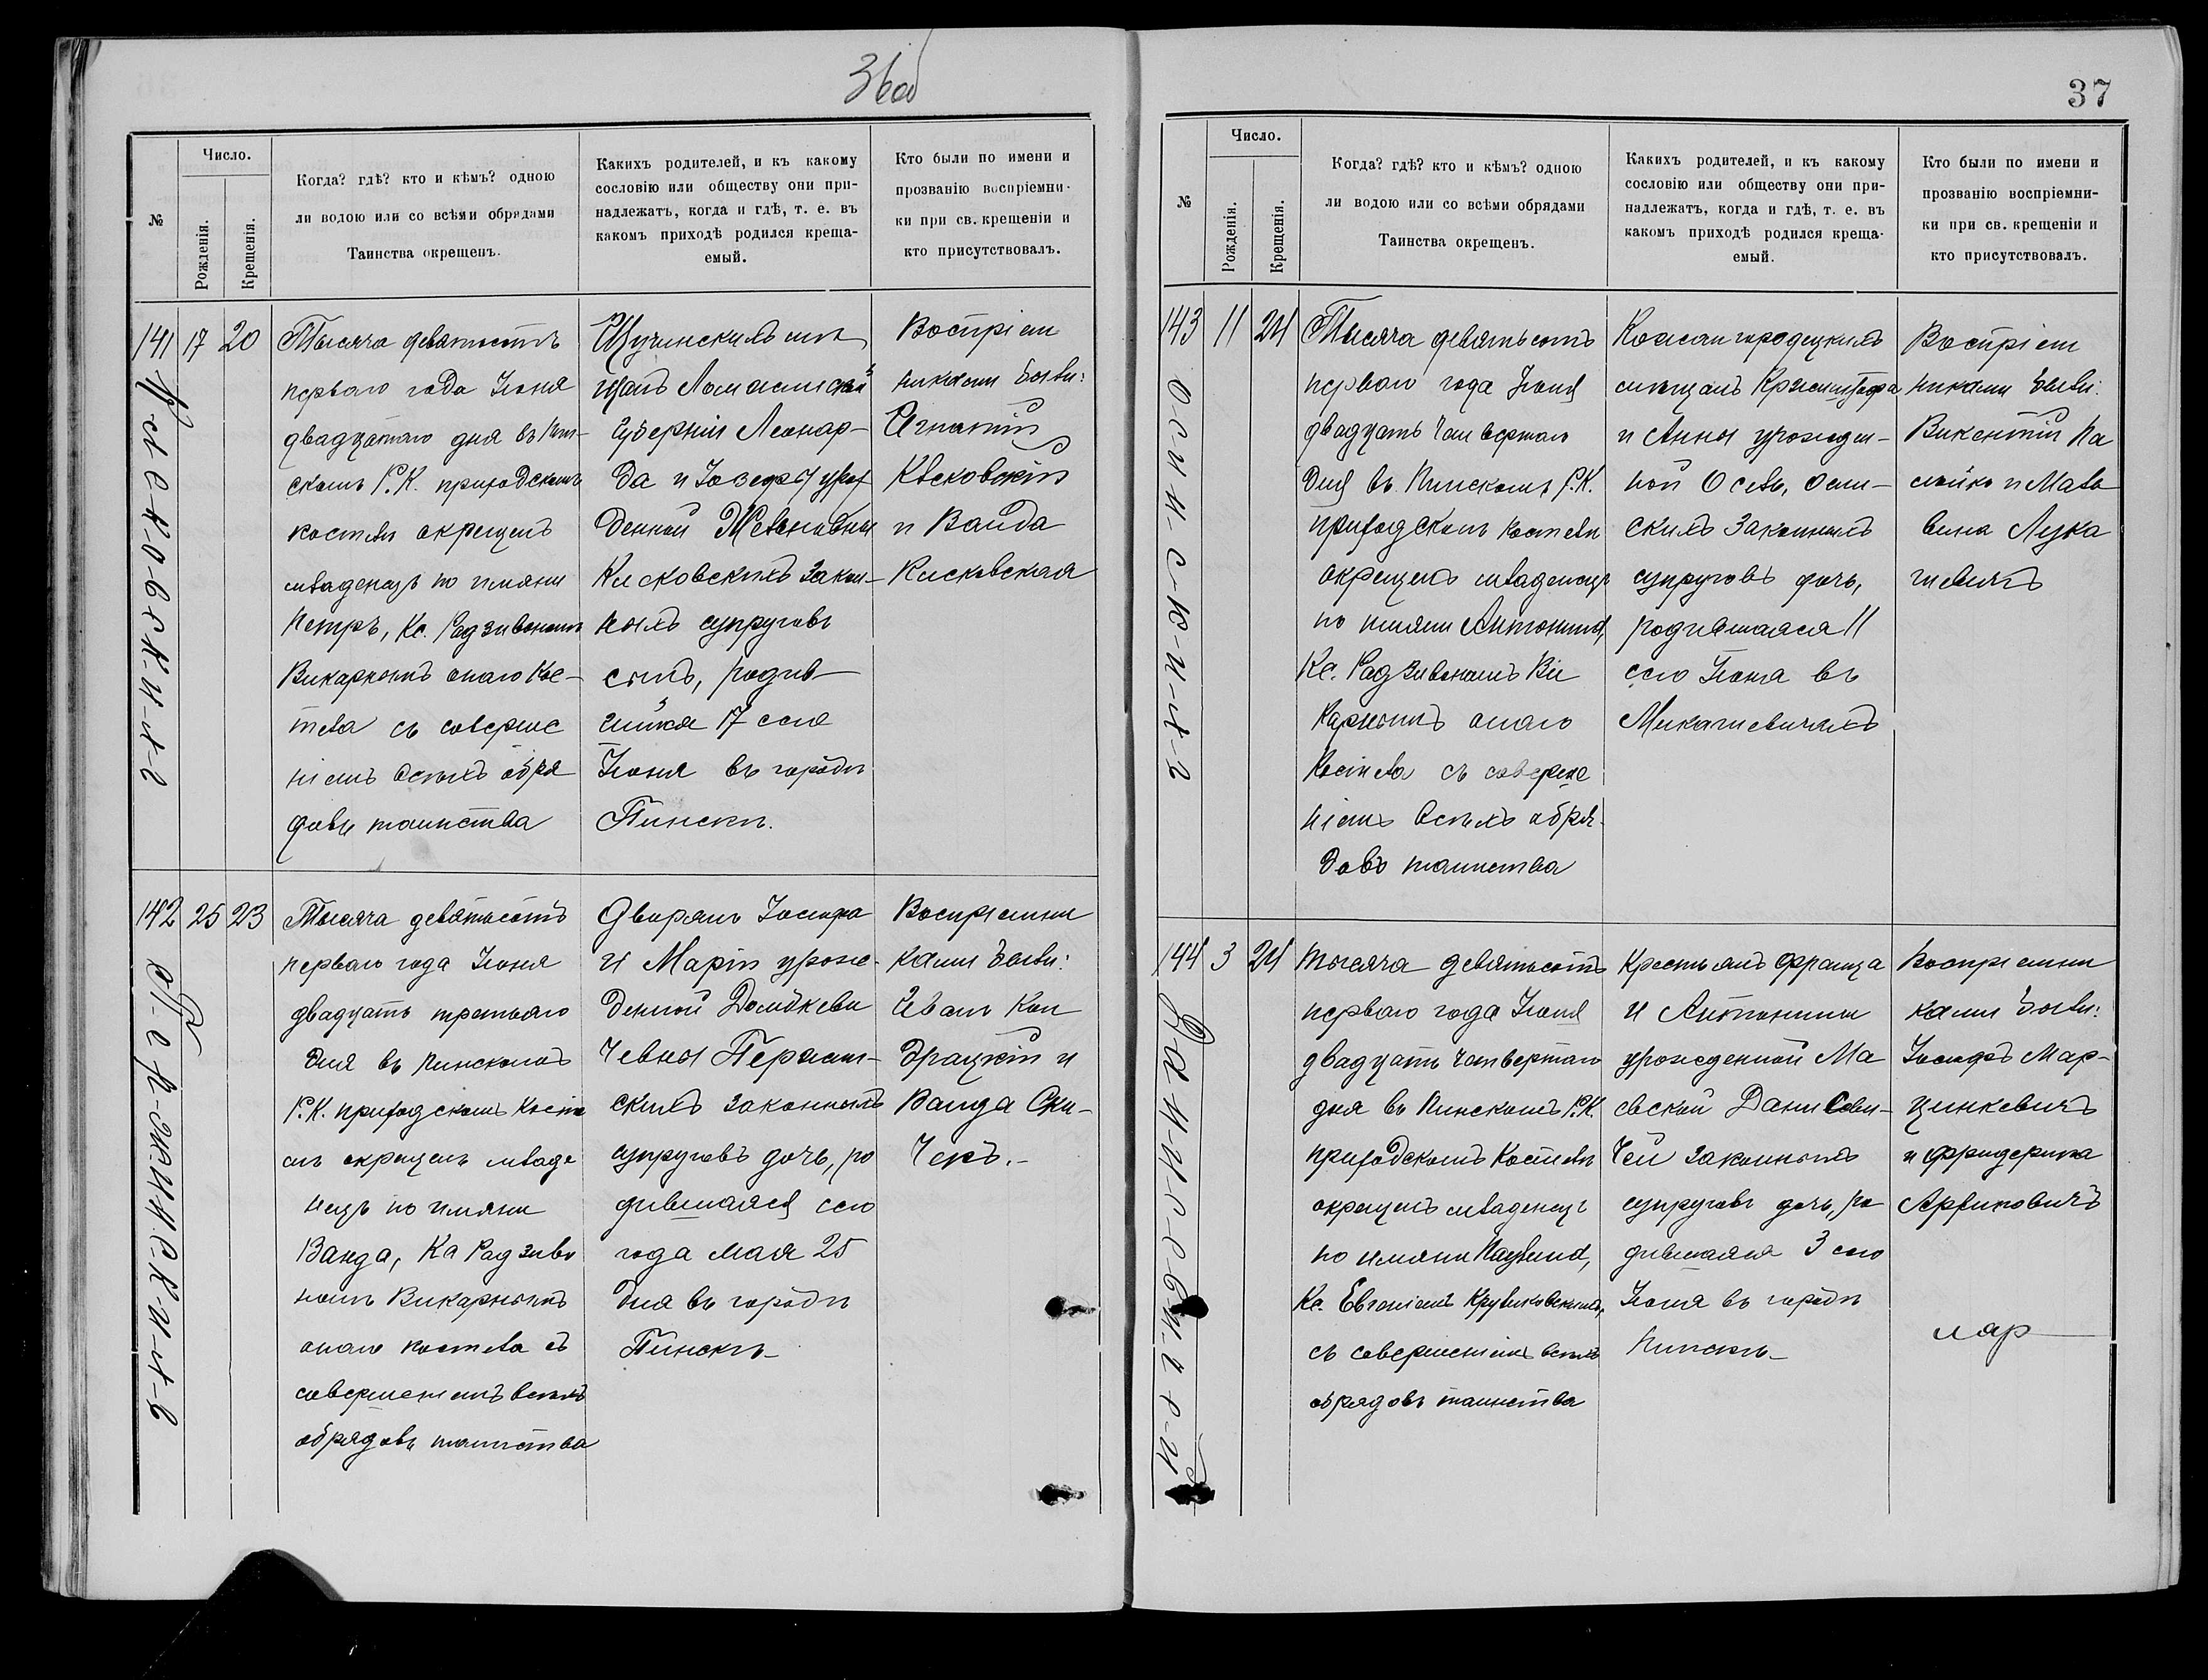 36об
№
Число.
Рожденія.
Крещенія.
Когда? гдѣ? кто и кѣмъ? одною
ли водою или со всѣми обрядами
Таинства окрещенъ.
Какихъ родителей, и къ какому
сословію или обществу они при-
надлежатъ, когда и гдѣ, т. е. въ
какомъ приходѣ родился креща-
емый.
Кто были по имени и
прозванію воспріемни-
ки при св. крещеніи и
кто присутствовалъ.
141
17
20
Тысяча девятьсотъ
перваго года Іюня
двадцатаго дня въ Пин-
скомъ Р. К. приходскомъ
костелѣ окрещенъ
младенецъ по имяни
Петръ, Кс. Радзивономъ
Викарнымъ онаго Кос-
тела съ соверше
ніемъ всѣхъ обря
довъ таинства
Щучинскихъ мѣ
щанъ Ломжинской
Губерніи Леонар-
да и Іозефы урож
денной
законъ-
ныхъ супруговъ
сынъ, родив
шійся 17 сего
Іюня въ городѣ
Пинскѣ.
Воспріем
никами были:
Игнатій
и Ванда
142
25
23
Тысяча девятьсотъ
перваго года Іюня
двадцать третьяго
дня въ Пинскомъ
Р. К. приходскомъ косте
лѣ окрещенъ младе
нецъ по имяни
Ванда, Кс Радзиво
номъ Викарнымъ
онаго костела съ
совершеніемъ всѣхъ
обрядовъ таинства
Дворянъ Іосифа
и Маріи урож-
денной Домбкеви
чевны
скихъ законныхъ
супруговъ дочь, ро
дившаяся сего
года мая 25
дня въ городѣ
Пинскѣ
Воспріемни
ками были:
Иванъ Кон
драцкій и
Ванда Ски-
черъ.
37
№
Число.
Рожденія.
Крещенія.
Когда? гдѣ? кто и кѣмъ? одною
ли водою или со всѣми обрядами
Таинства окрещенъ.
Какихъ родителей, и къ какому
сословію или обществу они при-
надлежатъ, когда и гдѣ, т. е. въ
какомъ приходѣ родился креща-
емый.
Кто были по имени и
прозванію воспріемни-
ки при св. крещеніи и
кто присутствовалъ.
143
11
24
О-с-и-н-с-к-и-я-г
Тысяча девятьсотъ
перваго года Іюня
двадцать четвертаго
дня въ Пинскомъ Р. К.
приходскомъ костелѣ
окрещенъ младенецъ
по имяни Антонина,
Кс. Радзивономъ Ви
карнымъ онаго
Костела съ соверше
ніемъ всѣхъ обря-
довъ таинства
Кожангородецкихъ
мѣщанъ Криштофа
и Анны урожден-
ной
скихъ законныхъ
супруговъ дочь,
родившаяся 11
сего Іюня въ
Микашевичахъ
Воспріем
никами были:
Викентій Па
144
3
24
Тысяча девятьсотъ
перваго года Іюня
двадцать четвертаго
дня въ Пинскомъ Р. К.
приходскомъ Костелѣ
окрещенъ младенецъ
по имяни Паулина,
Кс. Евгеніемъ
съ совершеніемъ всѣхъ
обрядовъ таинства
Крестьянъ Франца
и Антонины
урожденной Ма
евской Данилеви-
чей законныхъ
супруговъ дочь, ро
дившаяся 3 сего
Іюня въ городѣ
Пинскѣ
Воспріемни
ками были:
Іосифъ Мар-
цинкевичъ
и Фридерика